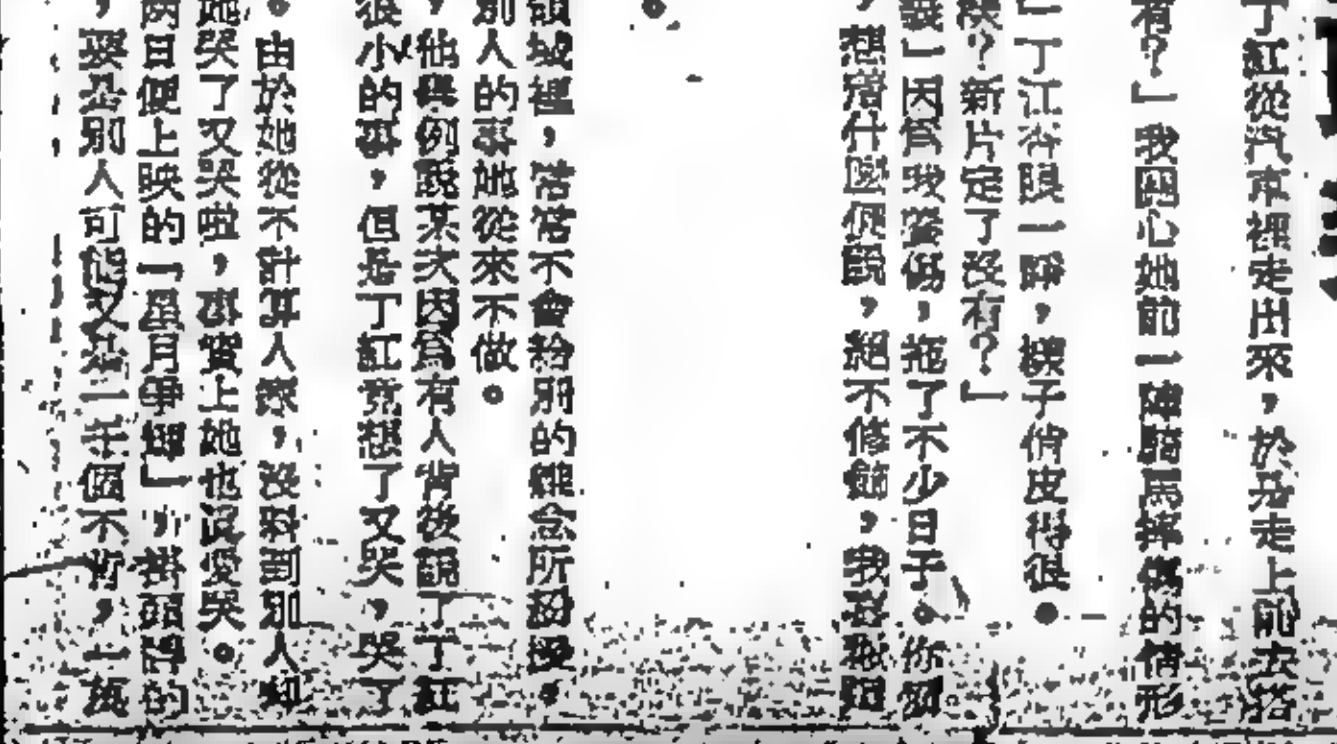 丁紅從汽車裡走出來，於是走上前去搭
有？」我關心她前一陣騎馬摔傷的情形
」丁紅一睜，樣子俏皮得很。
？新片定了沒有？」
」因爲我受傷，拖了不少日子。你
，想着什麼便說，絕不修飾，我
裡，常常不會給別的雜念所
別人的事她從來不做。
，他舉例說某次因爲有人背後說了丁紅
很小的事，但是丁紅竟想了又哭，哭了
。由於她從不計算人家，沒料到別人却
她哭了又哭啦，事實上她也眞愛哭。
兩日便上映的「星月爭輝」，掛頭牌的
，要是別人可能又是一千個不肯，一